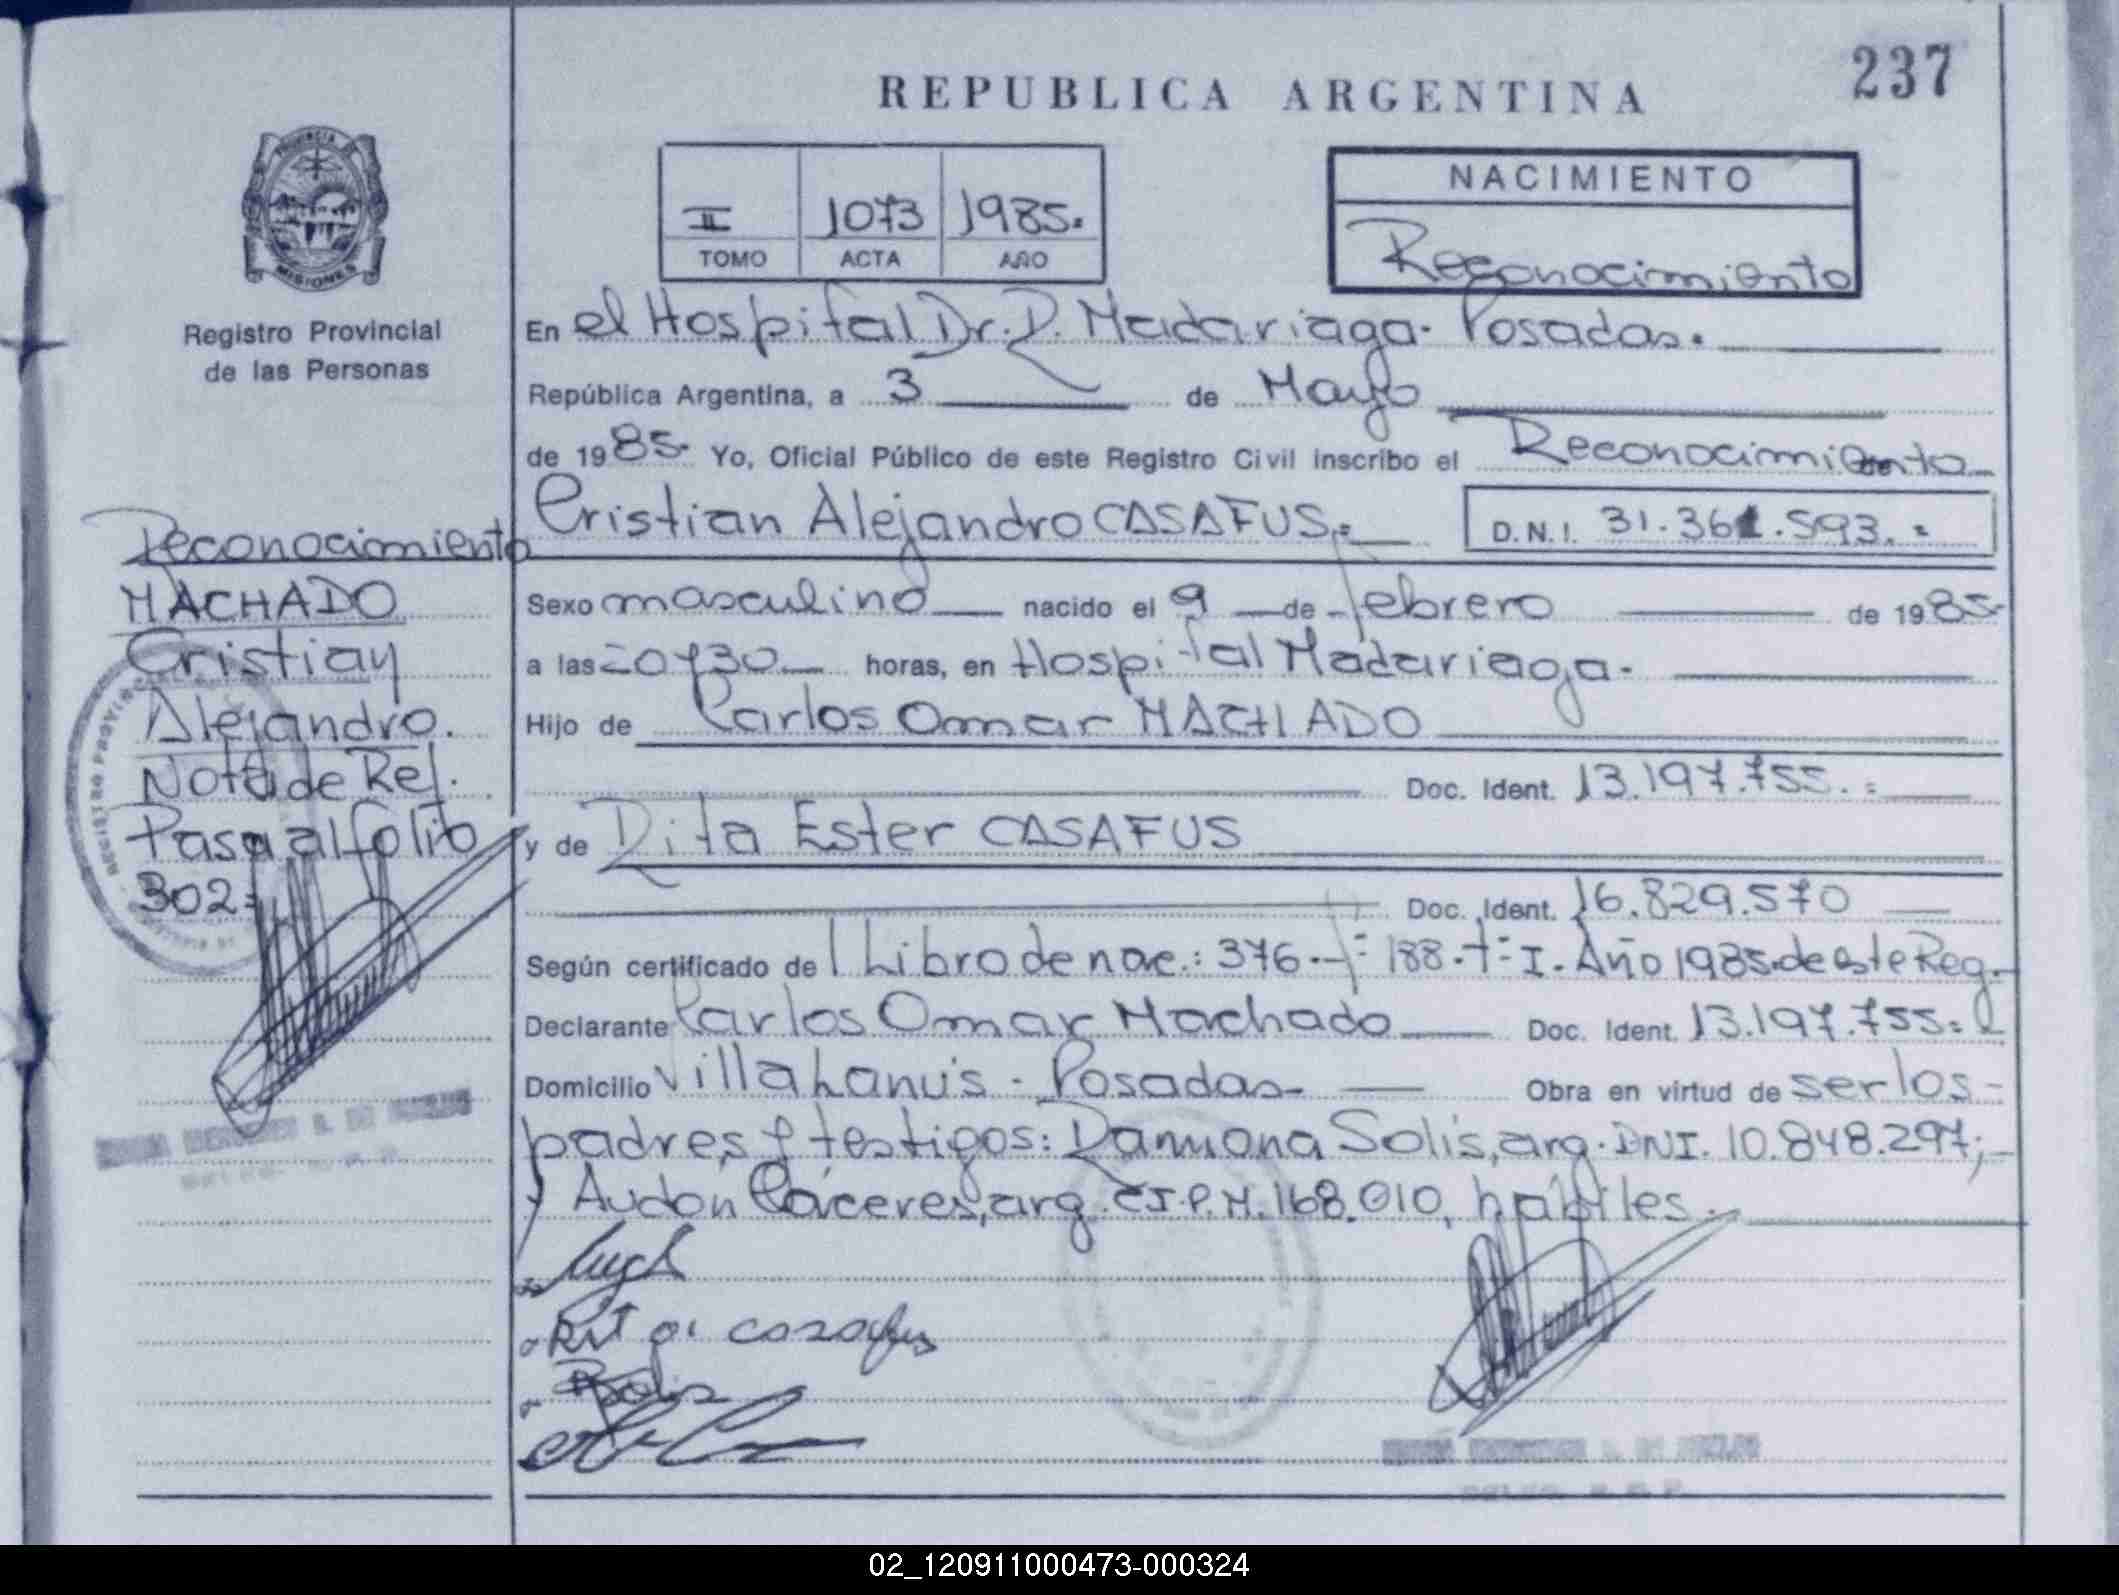 237
REPUBLICA ARGENTINA
PROVINCIA DE
MISIONES
Registro Provincial
de las Personas
II 1073 1985.
TOMO ACTA AÑO
NACIMIENTO
Reconocimiento
En el Hospital Dr. R. Madariaga. Posadas.
República Argentina, a 3 de Mayo
de 1985. Yo, Oficial Público de este Registro Civil inscribo el Reconocimiento
Cristian Alejandro CASAFUS.=
D.N.I. 31.361.593.=
Sexo masculino nacido el 9 de febrero de 1985.
a las 20 y 30 horas, en Hospital Madariaga.
Hijo de Carlos Omar MACHADO
Doc. Ident. 13.197.755.=
y de Rita Ester CASAFUS
Doc. Ident. 16.829.570
Según certificado de l Libro de nac.: 376.-f= 188.-t= I. Año 1985. de este Reg.
Declarante Carlos Omar Machado Doc. Ident. 13.197.755.=
Domicilio Villa Lanús - Posadas- Obra en virtud de ser los
padres y testigos: Ramona Solis, arg. DNI. 10.848.297;-
y Audón Cáceres, arg. CI.P.M. 168.010, hábiles.
Rita casafus
Reconocimiento
MACHADO
Cristian
Alejandro.
Nota de Ref.
Pasa al folio
302=
REGISTRO PROVINCIAL
02_120911000473-000324